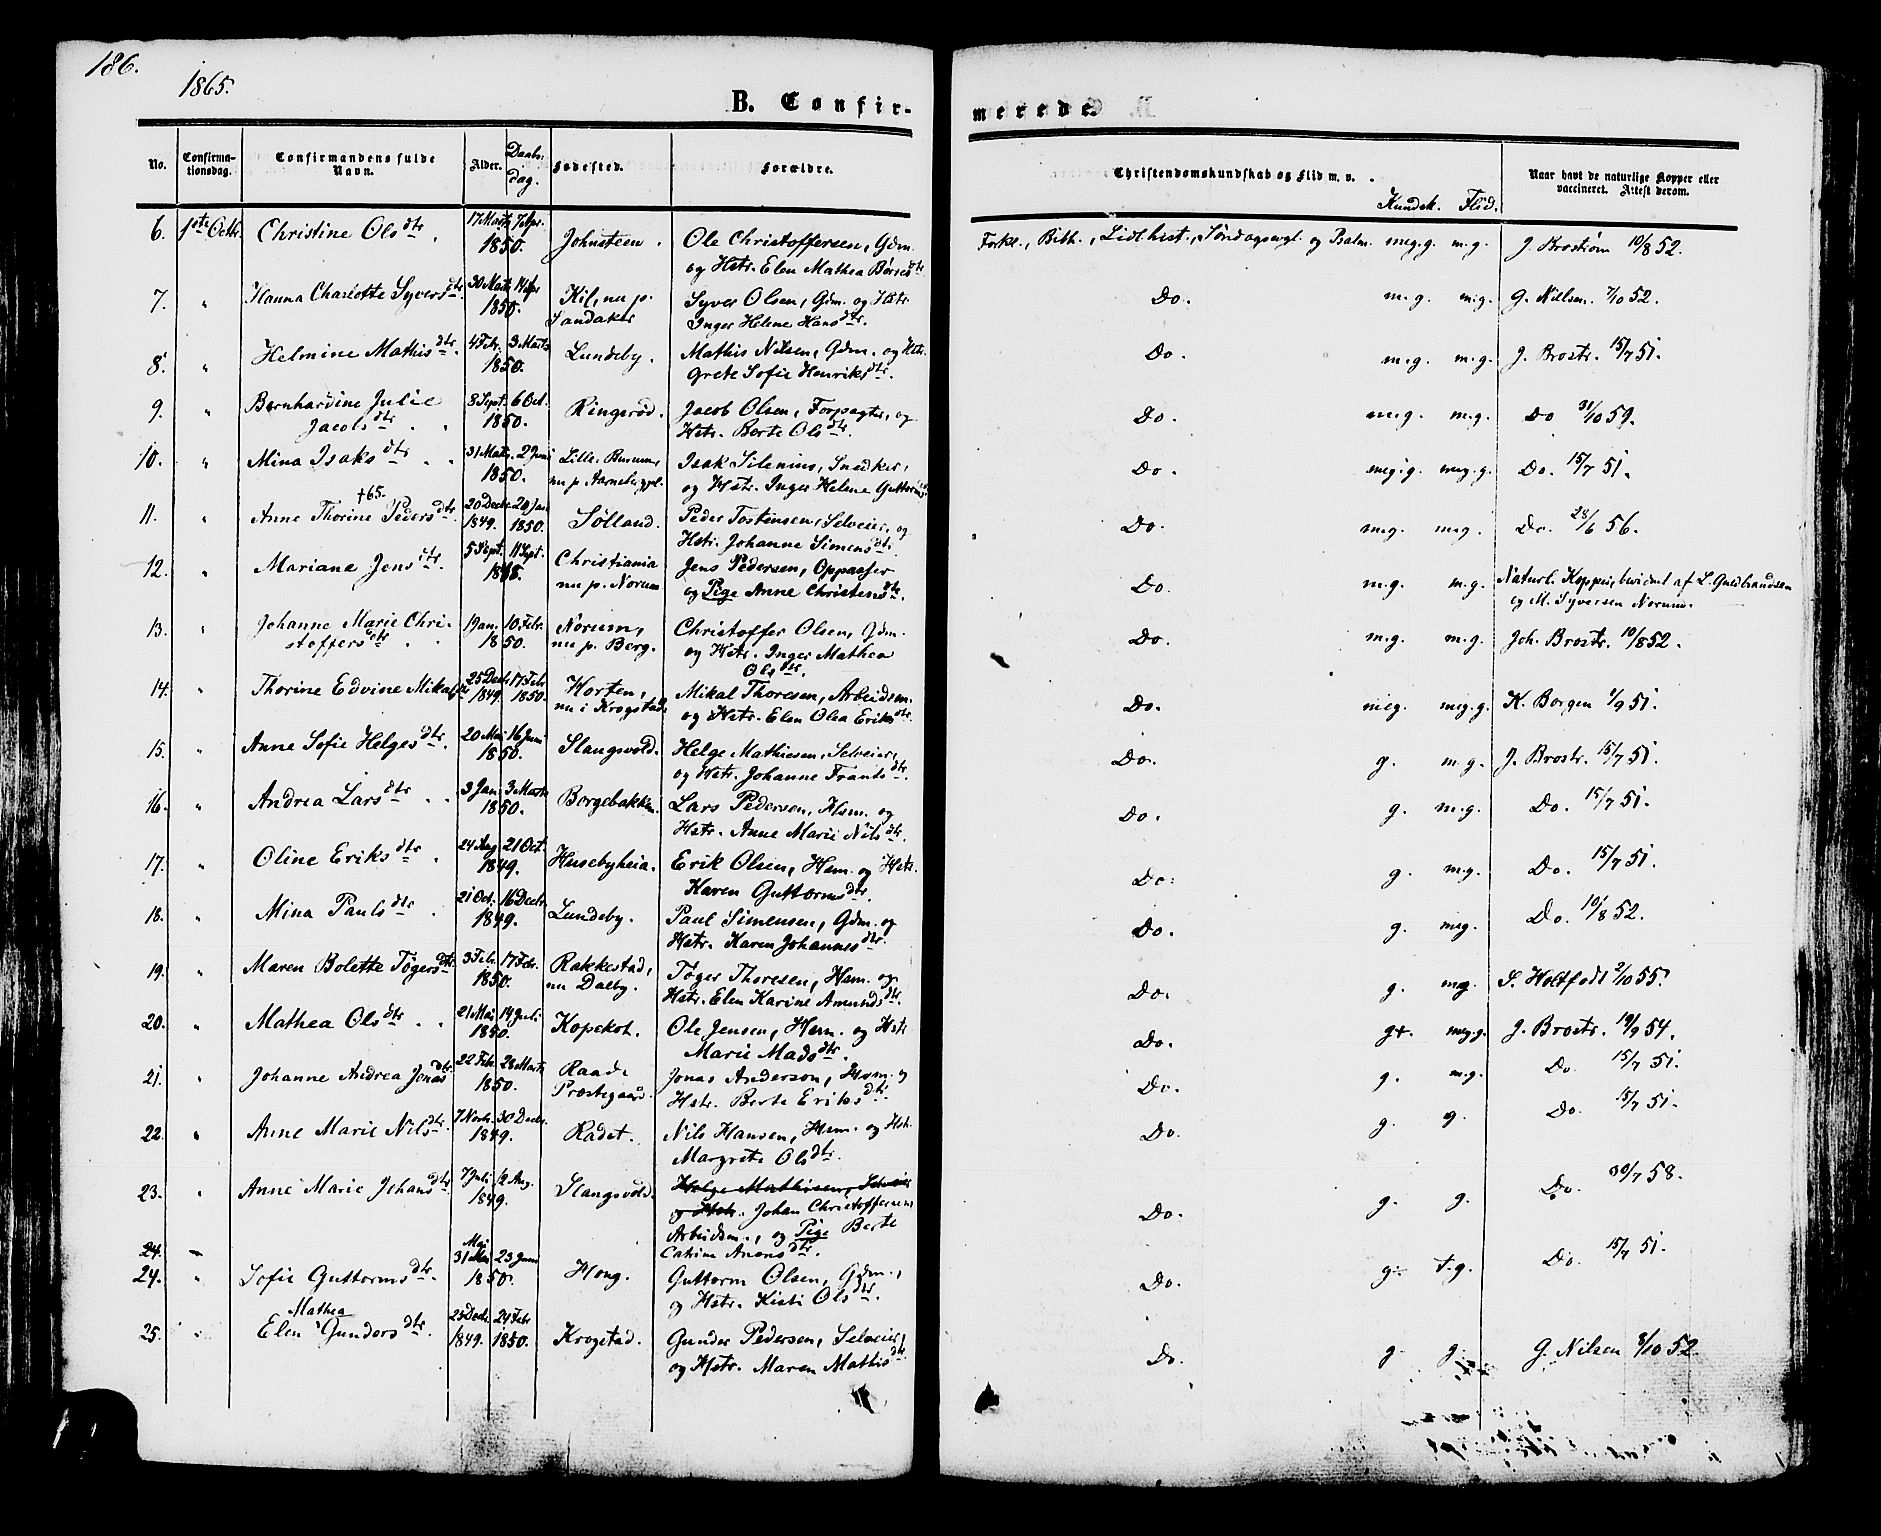 186.
1865.
B. Confir-
merede
No. Confirma-
tionsdag. Confirmandens fulde
Navn. Alder. Daabs-
dag. Fødested. Forældre. Christendomskundskab og Flid m. v. Kundsk. Flid. Naar havt de naturlige Kopper eller
vaccineret. Attest derom.
6. 1ste Octbr. Christine Olsdtr. 17 Marts 7 Apr. 1850. Johnsteen. Ole Christoffersen, Gdm.
og Hstr. Elen Mathea Børresdtr. Forkl., Bibh., Søndagsevgl. og Psalm. meg.g. m.g. J. Brostrøm 10/8 52.
7. " Hanna Charlotte Syversdtr. 30 Marts 14 Apr 1850. Kil, nu p.
Sandaker Syver Olsen, Gdm. og Hstr
Inger Helene Hansdtr. Do. m.g. m.g. G. Nilsen. 7/10 52.
8. " Helmine Mathisdtr. 4 Febr. 3 Marts 1850. Lundeby. Mathis Nilsen, Gdm. og Hstr.
Grete Sofie Henriksdtr. Do. m.g. m.g. J. Brostr. 15/7 51.
9. " Bernhardine Julie
Jacobsdtr. 8 Sept. 6 Oct. 1850. Ringsrød. Jacob Olsen, Forpagter, og
Hstr. Berte Olsdtr. Do. m.g. m.g. Do 31/10 59.
10. " Mina Isaksdtr. 31 Marts. 2 Juni 1850. Lille
nu p. Isak Silenius, Snedker,
og Hstr. Inger Helene Guttormsdtr Do. meg.g. meg.g. Do. 15/7 51.
+65.
11. " Anne Thorine Pedersdtr. 20 Decbr 1849. 20 Jan 1850. Sølland. Peder Tostensen, Selveier, og
Hstr. Johanne Simensdtr. Do. m.g. m.g. Do. 28/6 56.
12. " Mariane Jensdtr. 5 Sept. 11 Sept. Christiania
nu p. Norum Jens Pedersen, Oppasser
og Pige Anne Christensdtr. Do. m.g. m.g. Naturl. Kopper, bevidnet af L. Guldbrandsen
og M. Syversen Norum.
13. " Johanne Marie Chri-
stoffersdtr. 1 Jan. 10 Febr. 1850. Norum,
nu p. Berg. Christoffer Olsen, Gdm.
og Hstr. Inger Mathea
Olsdtr. Do. m.g. m.g. Joh. Brostr. 10/8 52.
14. " Thorine Edvine Mikalsdtr 25 Decbr 1849. 17 Febr 1850. Horten,
nu i Krogstad. Mikal Thoresen, Arbeidsm.
og Hstr. Elen Olea Eriksdtr. Do. m.g. meg.g. K. Borgen 1/9 51.
15. " Anne Sofie Helgesdtr. 20 Mai 16 Juni 1850. Slangsvold. Helge Mathiesen, Selveier,
og Hstr. Johanne Frantsdtr. Do. g. m.g. J. Brostr. 15/7 51.
16. " Andrea Larsdtr. 3 Jan. 3 Marts 1850. Borgebakken. Lars Pedersen, Hsm. og
Hstr. Anne Marie Nilsdtr. Do. g. m.g. Do. 15/7 51.
17. " Oline Eriksdtr. 24 Aug 21 Oct. 1849. Husebyheia. Erik Olsen, Hsm. og Hstr.
Karen Guttormsdtr. Do. g. m.g. Do. 15/7 51.
18. " Mina Paulsdtr. 21 Oct. 16 Decbr. 1849. Lundeby. Paul Simensen, Gdm. og
Hstr. Karen Johannesdtr. Do. g. m.g. Do. 10/8 52.
19. " Maren Bolette Tøgersdtr. 3 Febr. 17 Febr. 1850. Rakkestad,
nu Dalby. Tøger Thoresen, Hsm. og
Hstr. Elen Karine Amundsdtr. Do. g. mg. S. Holtfodt 2/10 55.
20. " Mathea Olsdtr. 21 Mai 14 Juli 1850. Kopskot. Ole Jensen, Hsm. og Hstr
Marie Madsdtr. Do. g+. meg.g. J. Brostr. 19/9 54.
21. " Johanne Andrea Jonasdtr. 22 Febr. 28 Marts 1850. Raade
Præstegaard. Jonas Anderson, Hsm. og
Hstr. Berte Eriksdtr. Do. g. m.g. Do. 15/7 51.
22. " Anne Marie Nilsdtr. 7 Novbr. 30 Decbr. 1849. Radet. Nils Hansen, Hsm. og Hstr.
Margrete Olsdtr. Do. g. g. Do. 15/7 51.
23. " Anne Marie Johansdtr. 7 Juli 12 Aug. 1849. Slangsvold. Helge Mathisen, Selveier
og Hstr. Johan Christoffersen
Arbeidsm., og Pige Berte
Catrine Anensdtr. Do. g. g. Do. 30/7 58.
24.
24. " Sofie Guttormsdtr. Mai 31 Mai 23 Juni 1850. Houg. Guttorm Olsen, Gdm.,
og Hstr. Kisti Olsdtr. Do. g. t.g. Do. 15/7 51.
Mathea
25. " Elen Gundersdtr. 25 Decbr 1849. 24 Febr 1850. Krogstad. Gunder Pedersen, Selveier,
og Hstr. Maren Mathisdtr Do. g. g. G. Nilsen 8/10 52